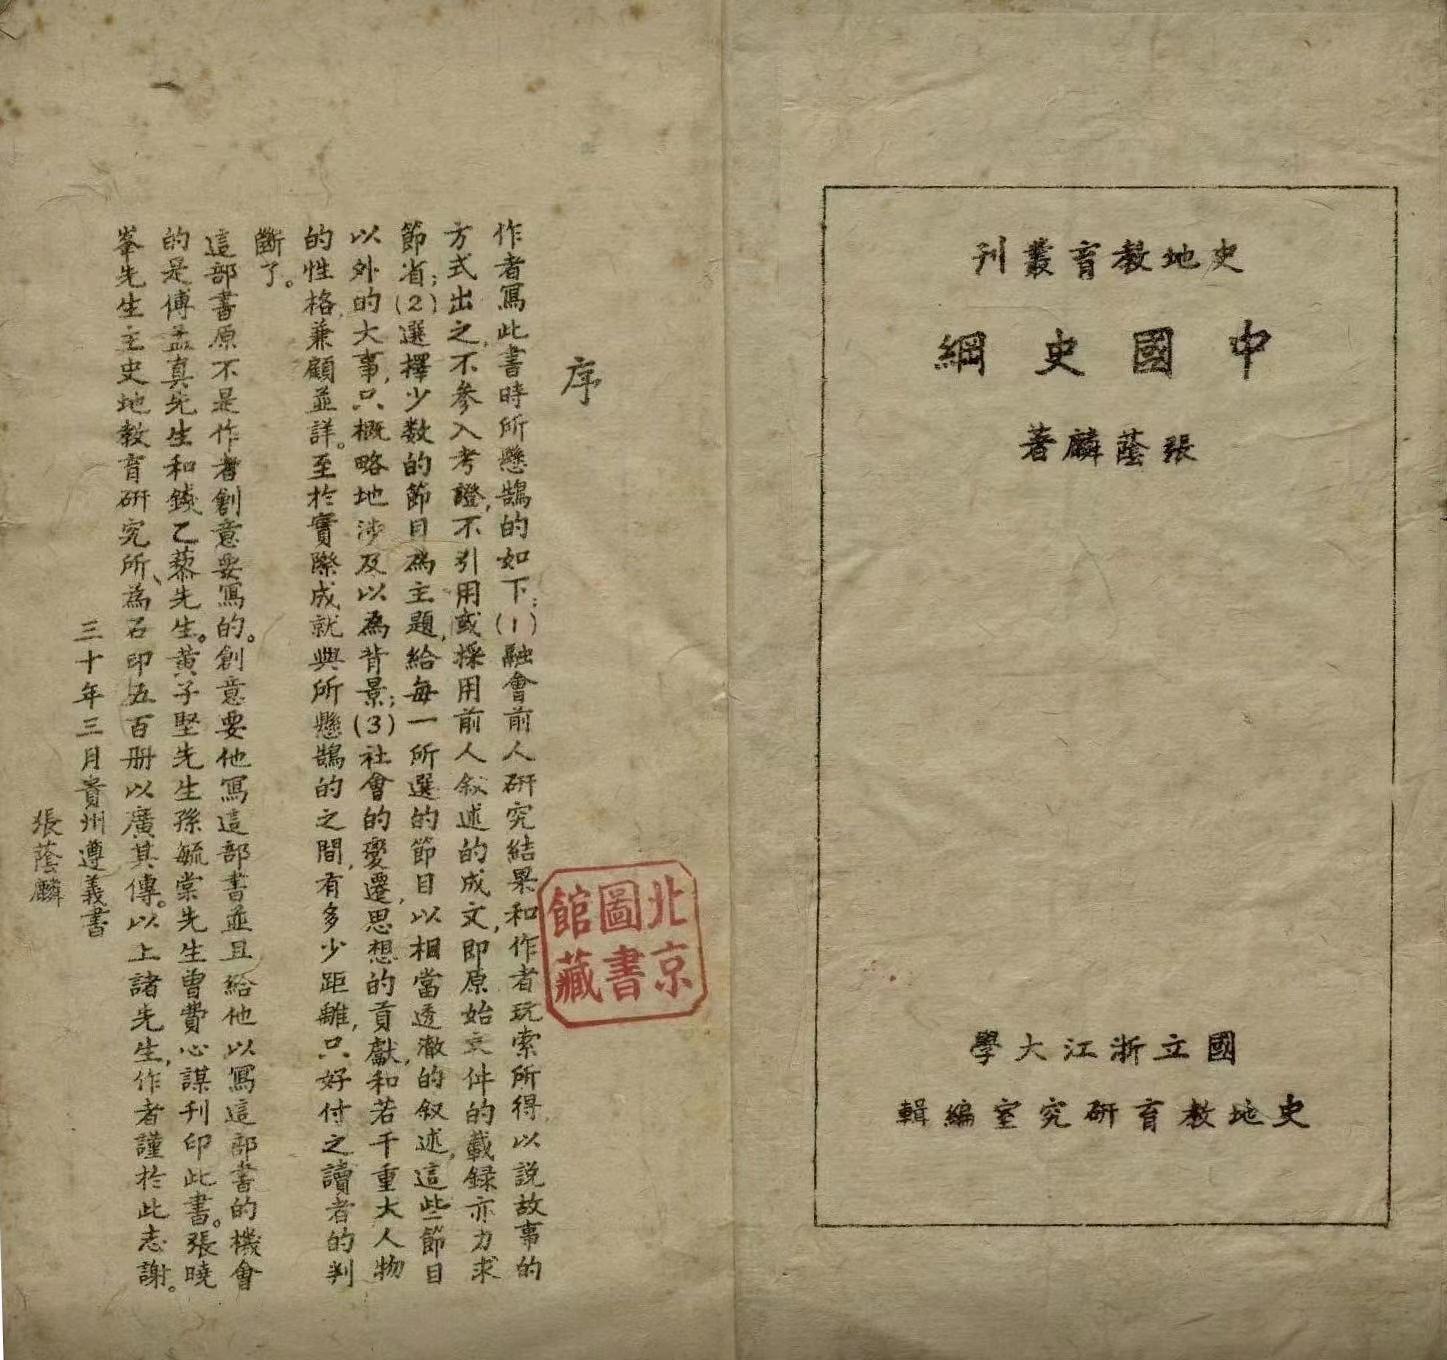 史地教育叢刊
中國史綱
張蔭麟著
國立浙江大學
史地教育研究室編輯
序
作者寫此書時所懸鵠的如下：(1)融會前人研究結果和作者玩索所得，以說故事的
方式出之，不參入考證，不引用或採用前人敘述的成文，即原始文件的載録亦力求
節省；(2)選擇少数的節目為主題，給每一所選的節目以相當透澈的叙述，這些節目
以外的大事，只概略地涉及以為背景；(3)社會的變遷，思想的貢獻，和若干重大人物
的性格，兼顧並詳。至於實際成就與所懸鵠的之間，有多少距離，只好付之讀者的判
斷了。
這部書原不是作者創意要寫的。創意要他寫這部書並且給他以寫這部書的機會
的是傅孟真先生和錢乙藜先生。黃子堅先生孫毓棠先生曾費心謀刊印此書。張曉
峯先生主史地教育研究所、為石印五百册以廣其傳。以上諸先生，作者謹於此志謝。
三十年三月貴州遵義書
張蔭麟
北京
圖書
館藏